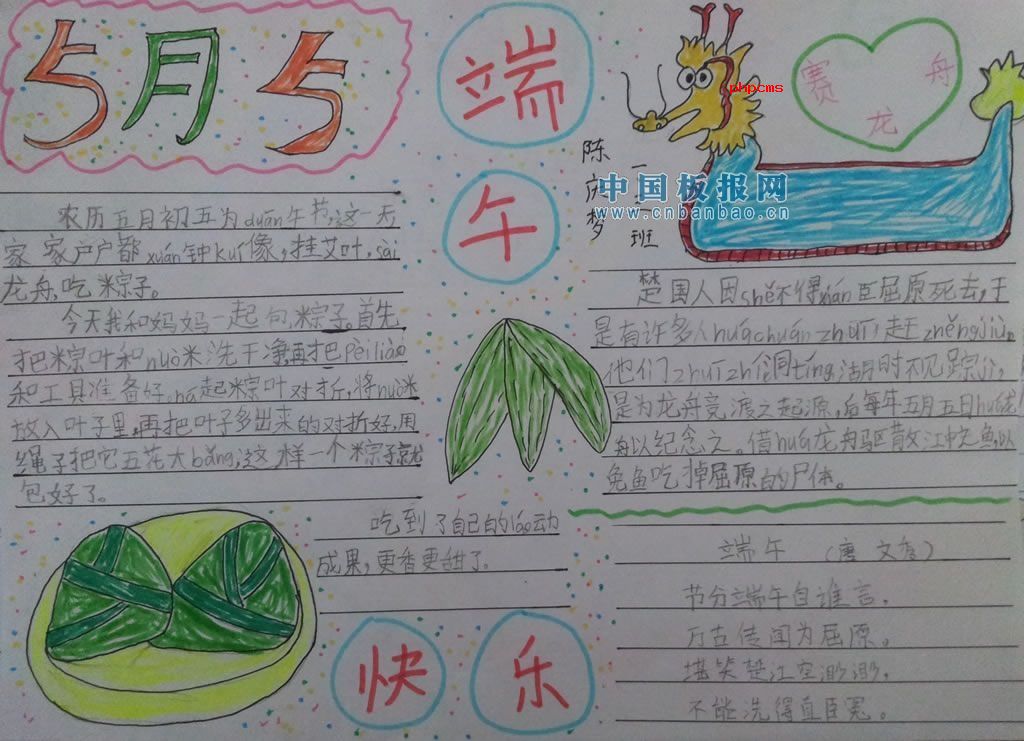 5月5
端
午
赛
龙
舟
phpcms
陈庆梦
一
班
中国板报网
www.cnbanbao.cn
农历五月初五为duān午节,这一天
家家户户都xuán钟kuí像,挂艾叶,sài
龙舟,吃粽子。
今天我和妈妈一起包粽子。首先
把粽叶和nuò米洗干净再把pèiliào
和工具准备好,ná起粽叶对折,将nuò米
放入叶子里,再把叶子多出来的对折好,用
绳子把它五花大bǎng,这样一个粽子就
包好了。
吃到了自己的láo动
成果,更香更甜了。
楚国人因shě不得xián臣屈原死去,于
是有许多人huáchuánzhuī赶zhěngjiù,
他们zhuīzhì洞tíng湖时不见踪jì,
是为龙舟竞渡之起源,后每年五月五日huá龙
舟以纪念之。借huá龙舟驱散江中之鱼,以
免鱼吃掉屈原的尸体。
端午 (唐 文秀)
节分端午自谁言,
万古传闻为屈原。
堪笑楚江空渺渺,
不能洗得直臣冤。
快
乐